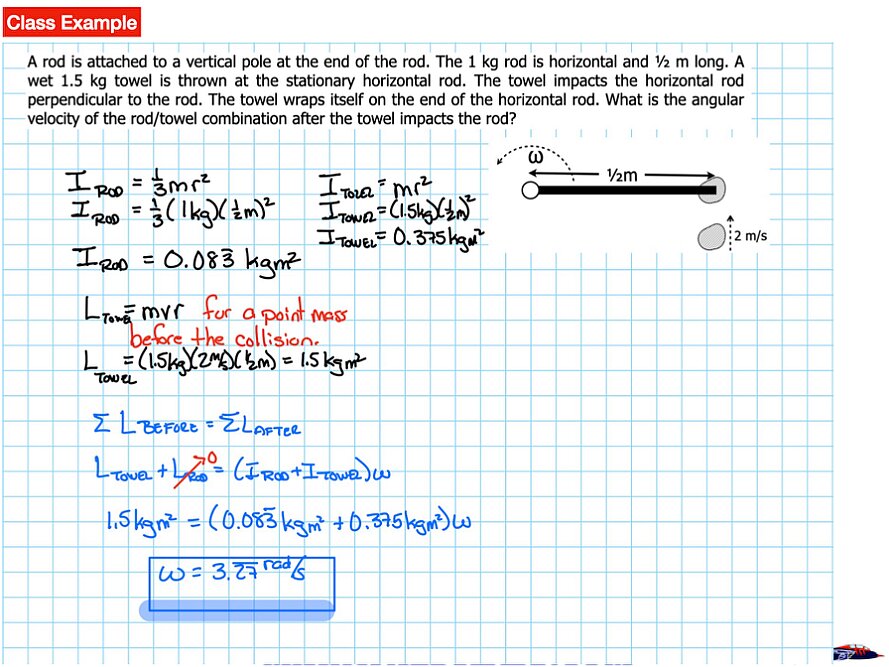 Class Example
A rod is attached to a vertical pole at the end of the rod. The 1 kg rod is horizontal and ½ m long. A
wet 1.5 kg towel is thrown at the stationary horizontal rod. The towel impacts the horizontal rod
perpendicular to the rod. The towel wraps itself on the end of the horizontal rod. What is the angular
velocity of the rod/towel combination after the towel impacts the rod?
I ROD = 1/3 mr²
I ROD = 1/3 (1kg)(1/2 m)²
I ROD = 0.083̄ kgm²
I TOWEL = mr²
I TOWEL = (1.5kg)(1/2m)²
I TOWEL = 0.375 kgm²
ω
½m
2 m/s
L TOWEL = mvr for a point mass
before the collision.
L TOWEL = (1.5kg)(2m/s)(1/2m) = 1.5 kgm²
Σ L BEFORE = Σ L AFTER
L TOWEL + L ROD 0 = (I ROD + I TOWEL)ω
1.5 kgm² = (0.083̄ kgm² + 0.375 kgm²)ω
ω = 3.2̅7̅ rad/s